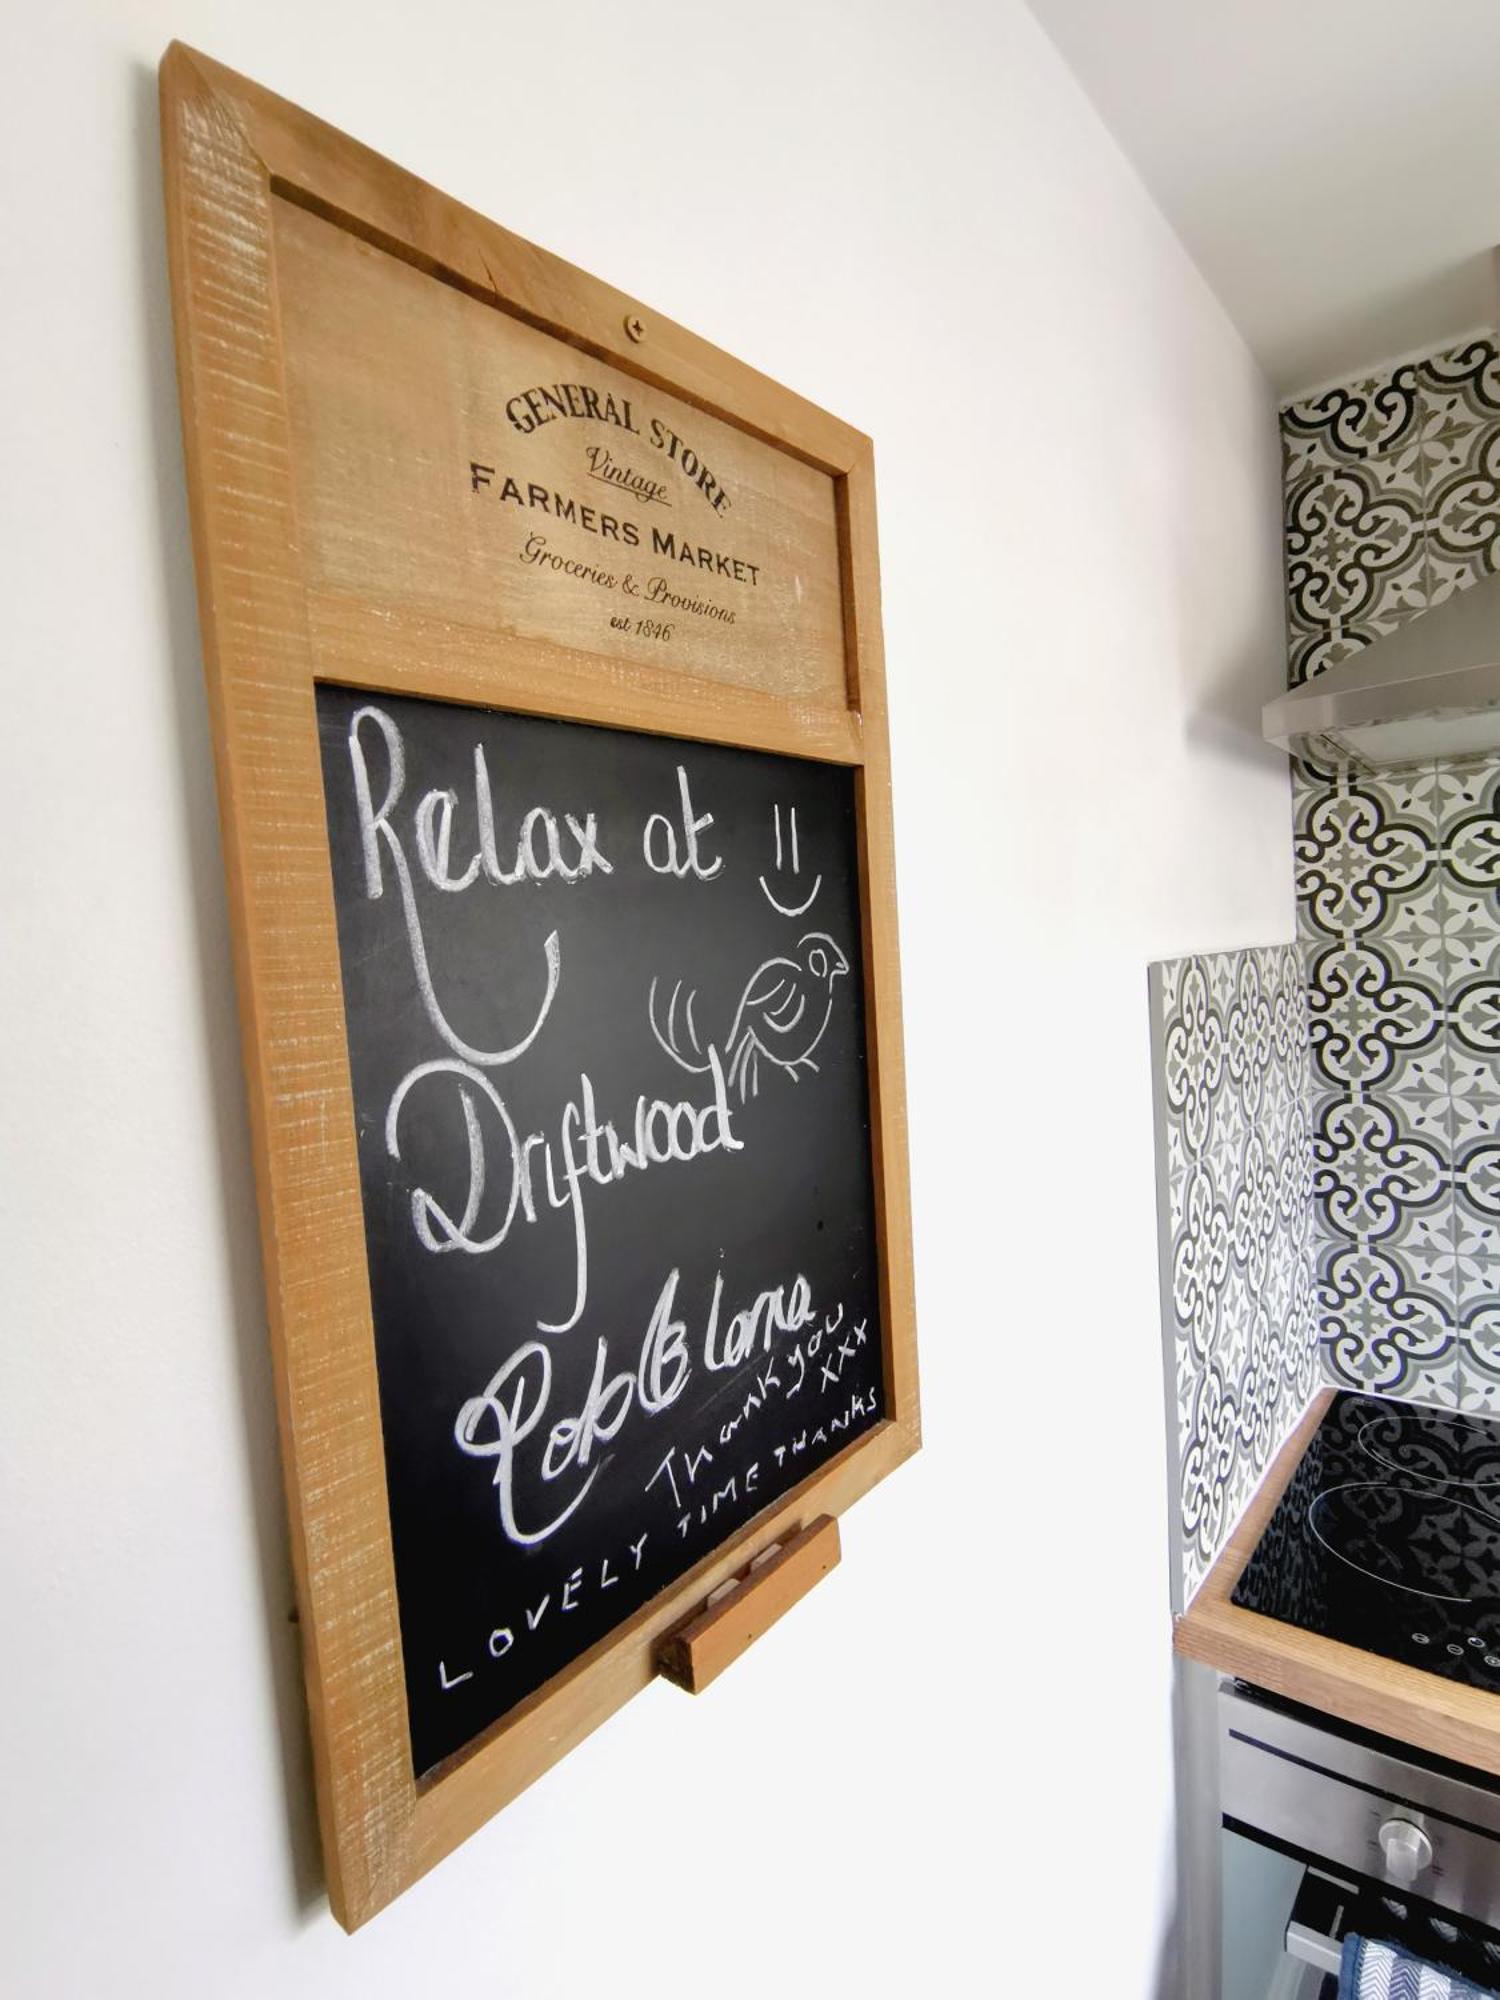 GENERAL STORE
Vintage
FARMERS MARKET
Groceries & Provisions
est 1846
Relax at
Driftwood
Rob & Lorna
Thank you
xxx
LOVELY TIME THANKS